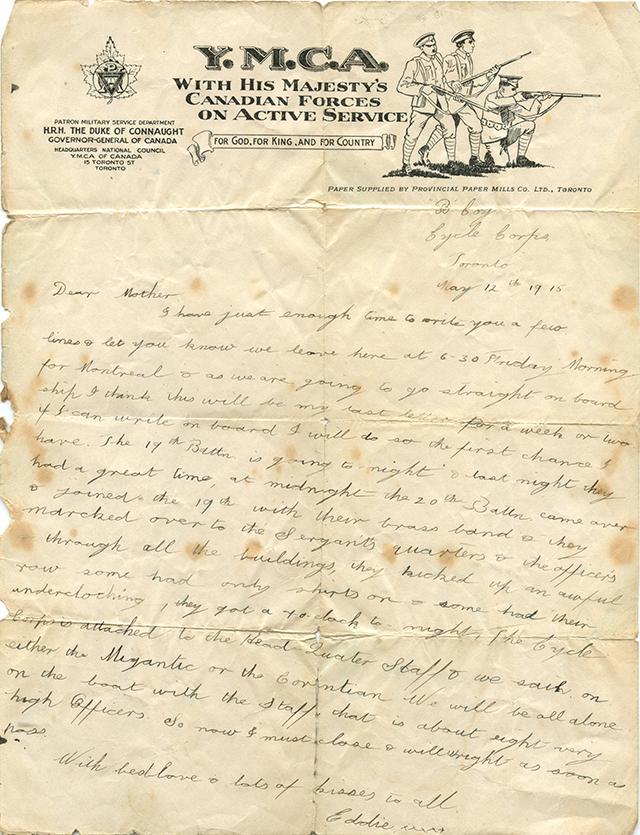 Y.M.C.A.
WITH HIS MAJESTY'S
CANADIAN FORCES
ON ACTIVE SERVICE
FOR GOD, FOR KING, AND FOR COUNTRY
PATRON MILITARY SERVICE DEPARTMENT
H.R.H. THE DUKE OF CONNAUGHT
GOVERNOR-GENERAL OF CANADA
HEADQUARTERS NATIONAL COUNCIL
Y.M.C.A. OF CANADA
15 TORONTO ST
TORONTO
PAPER SUPPLIED BY PROVINCIAL PAPER MILLS CO. LTD., TORONTO
B Coy
Cycle Corps
Toronto
May 12th 1915
Dear Mother
I have just enough time to write you a few
lines & let you know we leave here at 6-30 Friday Morning
for Montreal & as we are going to go straight on board
ship I think this will be my last letter for a week or two
if I can write on board I will do so the first chance I
have. The 19th Battn is going to night & last night they
had a great time, at midnight the 20th Battn came over
& joined the 19th with their brass band & they
marched over to the Sergants quarters & the officers
& through all the buildings, they kicked up an awful
row some had only shirts on & some had their
underclothing, they got a to night, The Cycle
Corps is attached to the Head Quater Staff & we sail on
either the Migantic or the Corintian We will be all alone
on the boat with the Staff, that is about eight very
high Officers So now I must close & will wright as soon as
poss.
With best love & lots of kisses to all.
Eddie